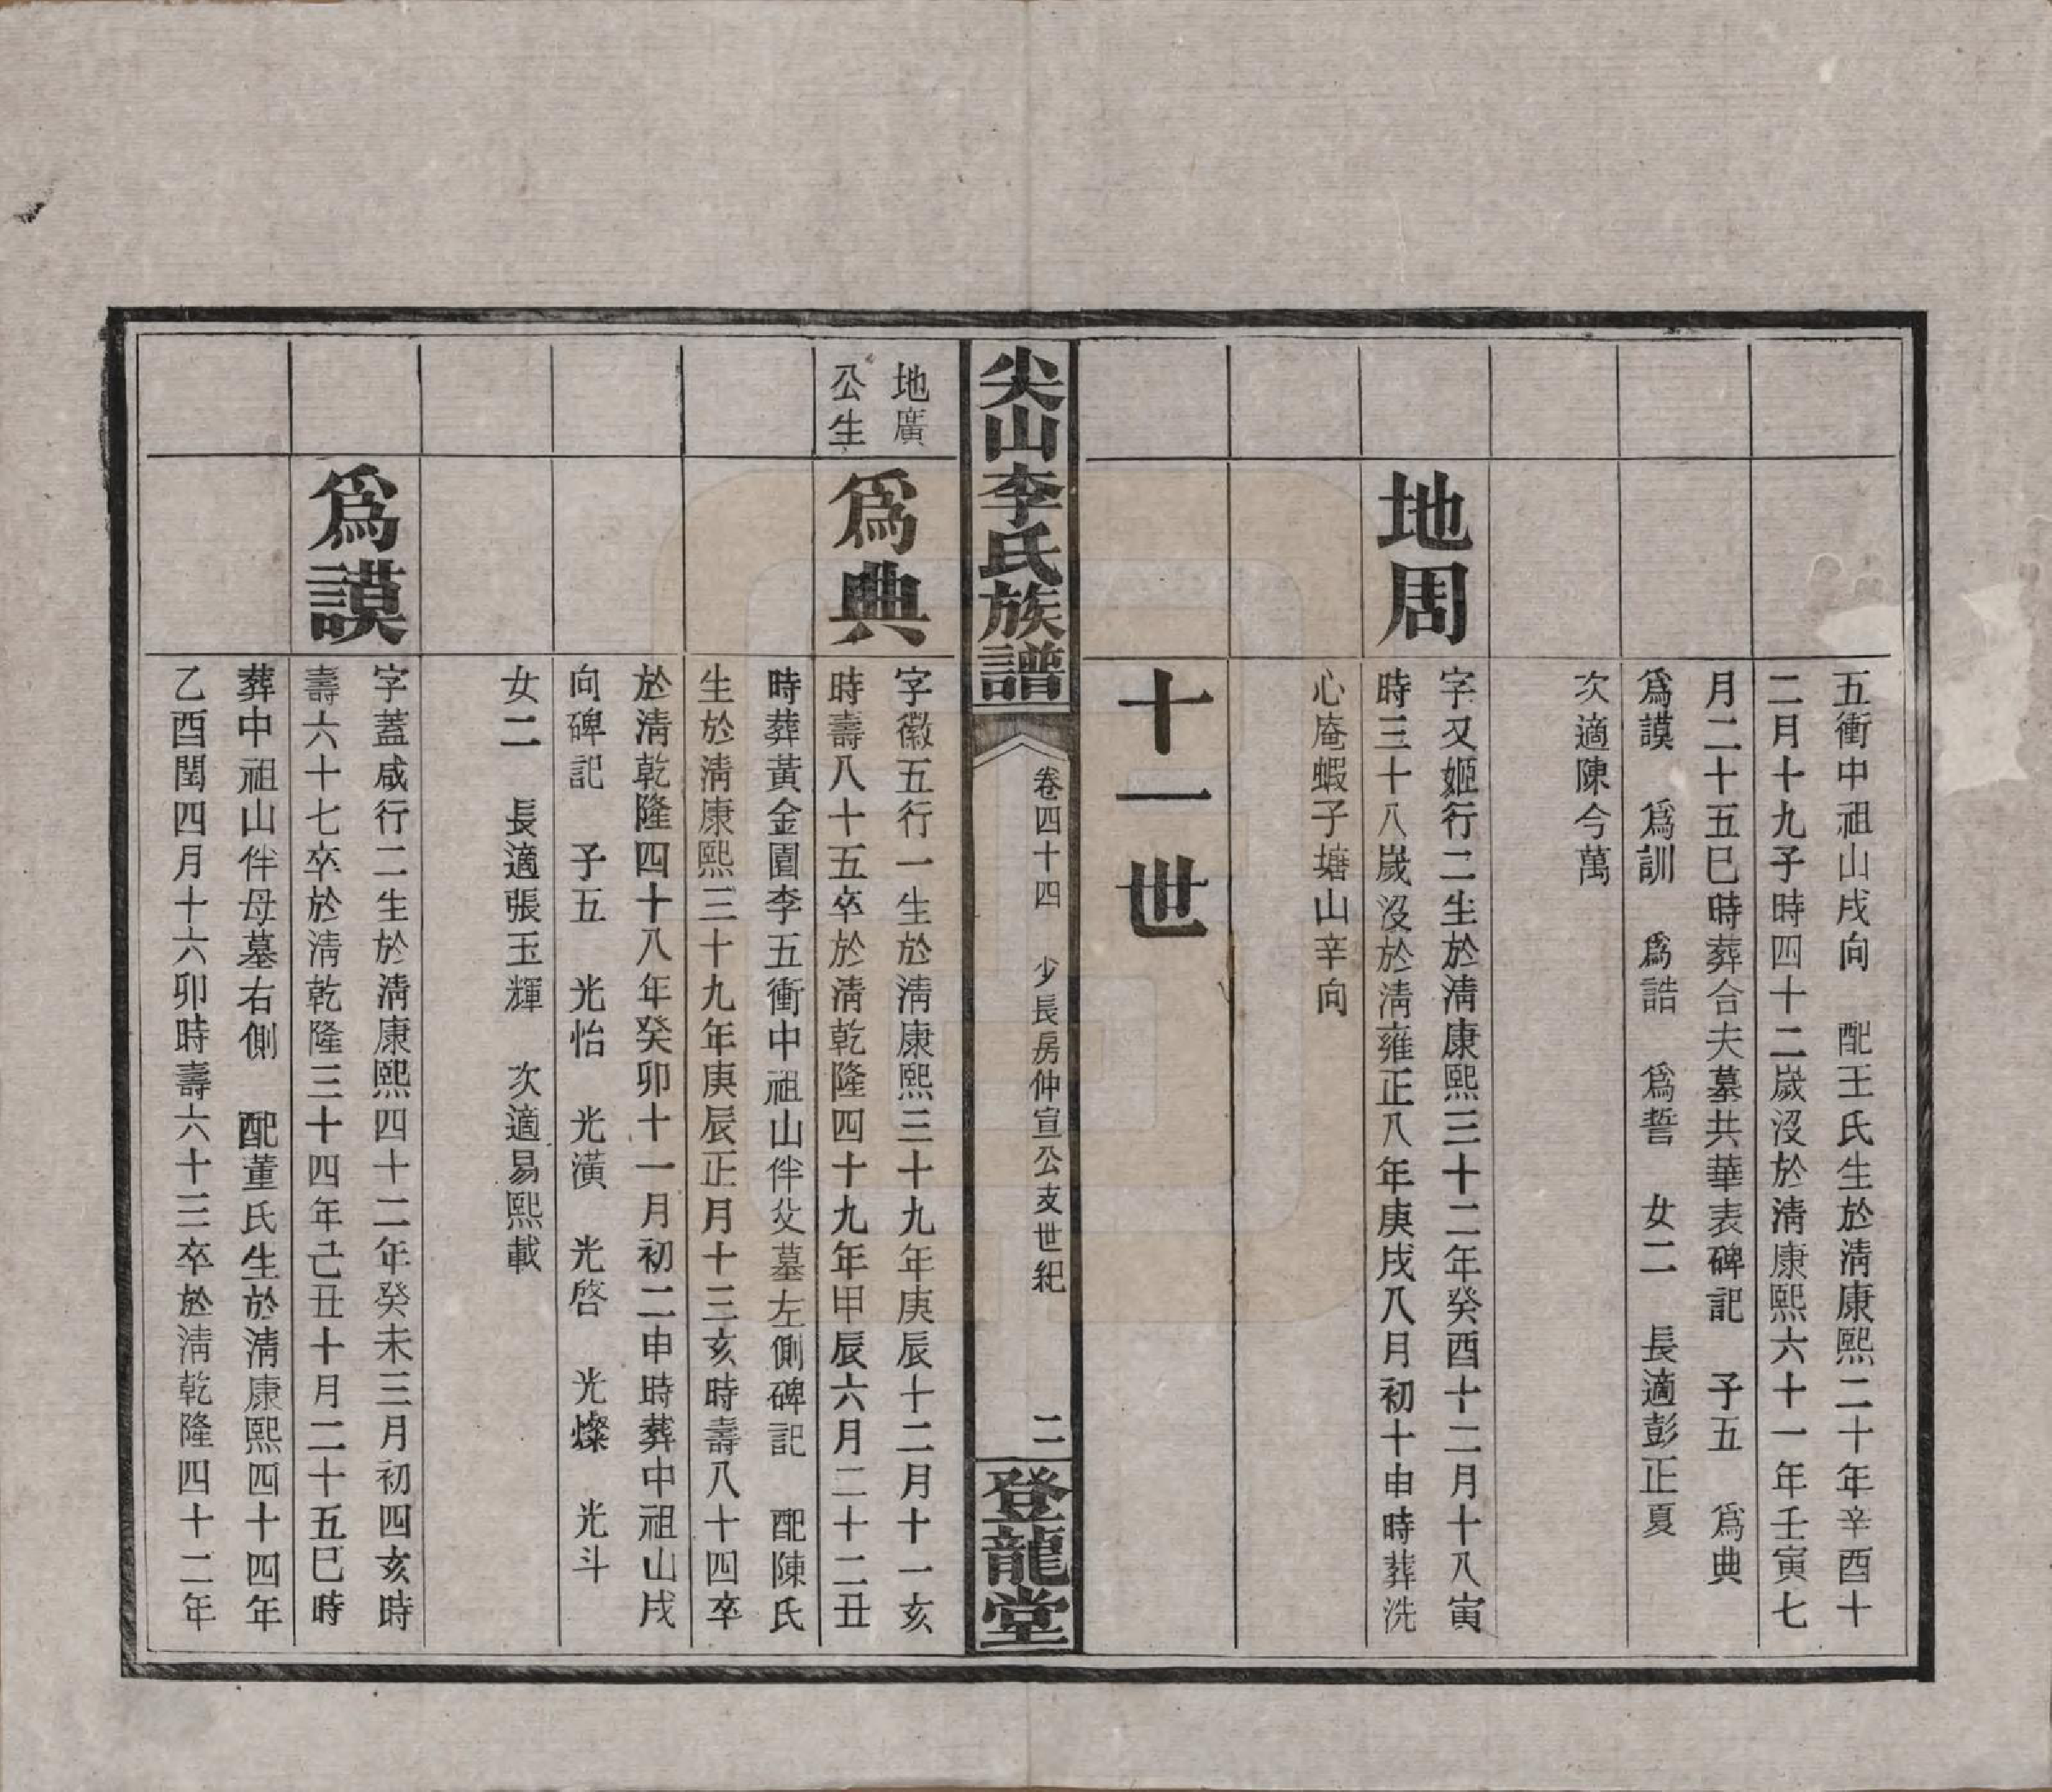 五衝中祖山戌向　配王氏生於淸康熙二十年辛酉十
二月十九子時四十二歲沒於淸康熙六十一年壬寅七
月二十五巳時葬合夫墓共華表碑記　子五　爲典
爲謨　爲訓　爲誥　爲誓　女二　長適彭正夏
次適陳今萬
地周
字又姬行二生於淸康熙三十二年癸酉十二月十八寅
時三十八歲沒於淸雍正八年庚戌八月初十申時葬洗
心庵蝦子塘山辛向
十一世
尖山李氏族譜
卷四十四　少長房仲宣公支世紀
二
登龍堂
地廣
公生
爲典
字徽五行一生於淸康熙三十九年庚辰十二月十一亥
時壽八十五卒於淸乾隆四十九年甲辰六月二十二丑
時葬黃金園李五衝中祖山伴父墓左側碑記　配陳氏
生於淸康熙三十九年庚辰正月十三亥時壽八十四卒
於淸乾隆四十八年癸卯十一月初二申時葬中祖山戌
向碑記　子五　光怡　光潢　光啓　光燦　光斗
女二　長適張玉輝　次適易熙載
爲謨
字蓋咸行二生於淸康熙四十二年癸未三月初四亥時
壽六十七卒於淸乾隆三十四年己丑十月二十五巳時
葬中祖山伴母墓右側　配董氏生於淸康熙四十四年
乙酉閏四月十六卯時壽六十三卒於淸乾隆四十二年